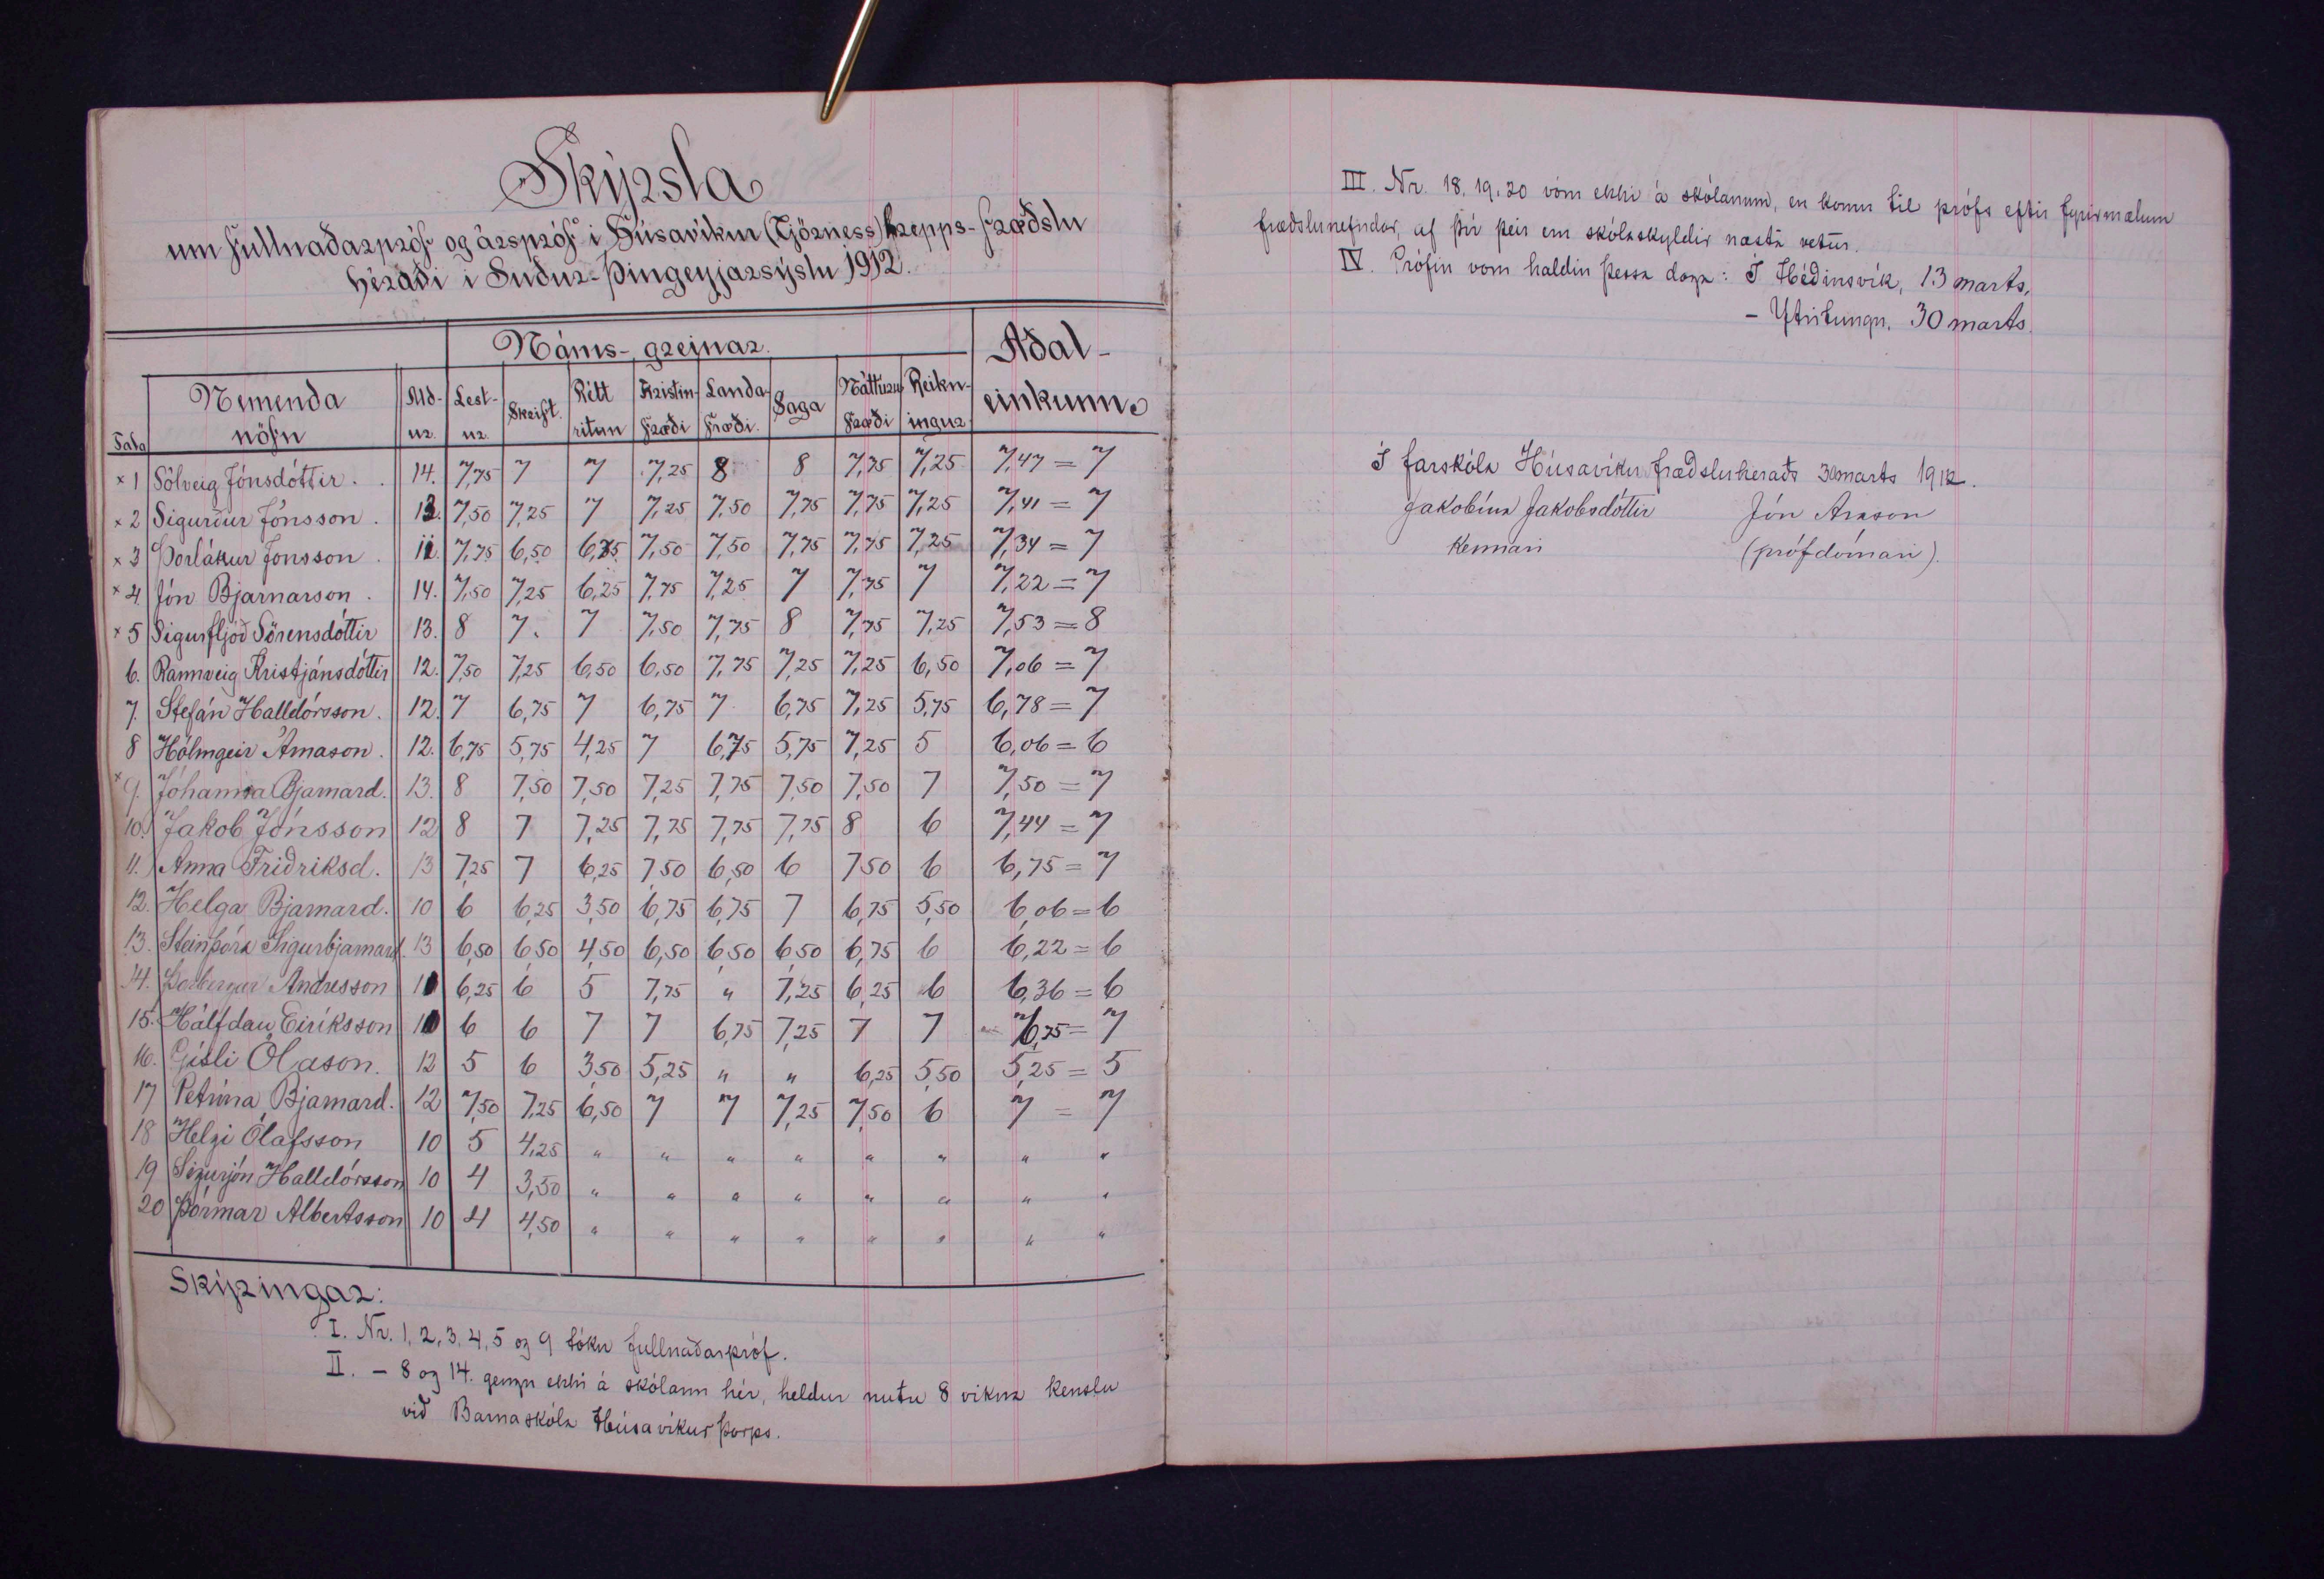 Skýrsla
um fullnaðarpróf og ársprófi í Húsavíkur (Tjörness) hrepps-fræðslu
héraði í Suður-Þingeyjarsýslu 1912.
Náms-greinar. Aðal-einkunn.
Tala Nemenda nöfn Ald-ur. Lest-ur. Skrift. Rétt ritun Kristin-fræði Landa-fræði. Saga Náttúru fræði Reikn-ingur.
× 1 Sólveig Jónsdóttir. 14. 7,75 7 7 7,25 8 8 7,75 7,25 7,47 = 7
× 2 Sigurður Jónsson. 13. 7,50 7,25 7 7,25 7,50 7,75 7,75 7,25 7,41 = 7
× 3 Þorlákur Jónsson. 11. 7,75 6,50 6,75 7,50 7,50 7,75 7,75 7,25 7,34 = 7
× 4 Jón Bjarnarson. 14. 7,50 7,25 6,25 7,75 7,25 7 7,75 7 7,22 = 7
× 5 Sigurfljóð Sörensdóttir 13. 8 7. 7 7,50 7,75 8 7,75 7,25 7,53 = 8
6. Rannveig Kristjánsdóttir 12. 7,50 7,25 6,50 6,50 7,75 7,25 7,25 6,50 7,06 = 7
7. Stefán Halldórsson. 12. 7 6,75 7 6,75 7 6,75 7,25 5,75 6,78 = 7
8 Hólmgeir Árnason. 12. 6,75 5,75 4,25 7 6,75 5,75 7,25 5 6,06 = 6
× 9. Jóhanna Bjarnard. 13. 8 7,50 7,50 7,25 7,75 7,50 7,50 7 7,50 = 7
10. Jakob Jónsson 12 8 7 7,25 7,75 7,75 7,75 8 6 7,44 = 7
11. Anna Friðriksd. 13 7,25 7 6,25 7,50 6,50 6 7,50 6 6,75 = 7
12. Helga Bjarnard. 10 6 6,25 3,50 6,75 6,75 7 6,75 5,50 6,06 = 6
13. Steinþóra Sigurbjarnard. 13 6,50 6,50 4,50 6,50 6,50 6,50 6,75 6 6,22 = 6
14. Þorbergur Andresson 10 6,25 6 5 7,75 " 7,25 6,25 6 6,36 = 6
15. Hálfdan Eiríksson 10 6 6 7 7 6,75 7,25 7 7 6,75 = 7
16. Gísli Ólason. 12 5 6 3,50 5,25 " " 6,25 5,50 5,25 = 5
17 Petrína Bjarnard. 12 7,50 7,25 6,50 7 7 7,25 7,50 6 7 = 7
18 Helgi Ólafsson 10 5 4,25 " " " " " " " "
19 Sigurjón Halldórsson 10 4 3,50 " " " " " " " "
20 Þórmar Albertsson 10 4 4,50 " " " " " " " "
Skýringar:
I. Nr. 1, 2, 3, 4, 5 og 9 tóku fullnaðarpróf.
II. – 8 og 14. gengu ekki á skólann hér, heldur nutu 8 vikna kenslu
við Barnaskóla Húsavíkur þorps.
III. Nr. 18. 19. 20 vóru ekki á skólanum, en komu til prófs eftir fyrirmælum
fræðslunefndar, af því þeir eru skólaskyldir næsta vetur.
IV. Prófin vóru haldin þessa daga: Í Héðinsvík, 13 marts,
– Ytritungu. 30 marts.
Í farskóla Húsavíkur fræðsluheraðs 30 marts 1912.
Jakobína Jakobsdóttir Jón Arason
Kennari (prófdómari).